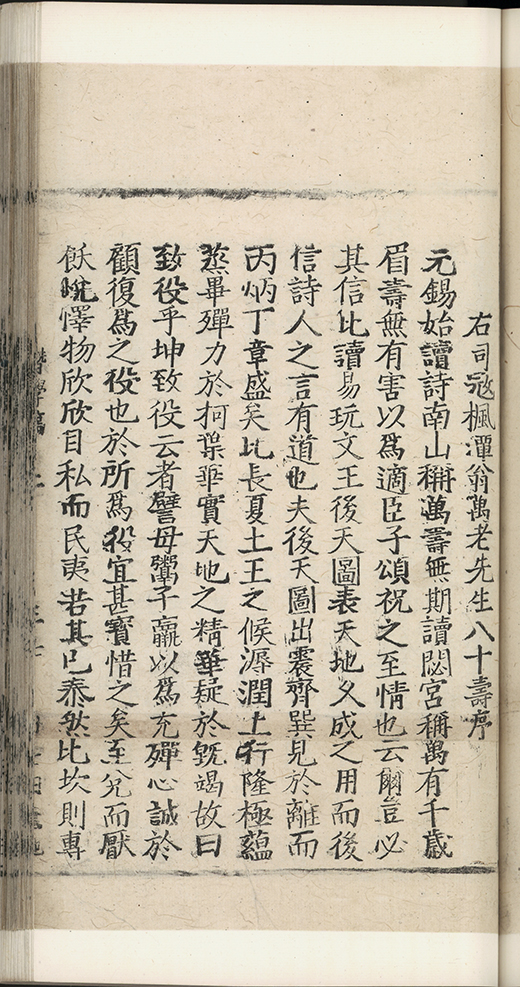 右司寇楓潭翁萬老先生八十壽序
元錫始讀詩南山稱萬壽無期讀閟宮稱萬有千歲
眉壽無有害以爲適臣子頌祝之至情也云爾豈必
其信比讀易玩文王後天圖表天地久成之用而後
信詩人之言有道也夫後天圖出震齊巽見於離而
丙炳丁章盛矣比長夏土王之候溽潤上行隆極蘊
蒸畢殫力於柯葉華實天地之精華疑於旣竭故曰
致役乎坤致役云者譬母鬻子羸以爲充殫心誠於
顧復爲之役也於所爲役宜甚寶惜之矣至兊而厭
飫恱懌物欣欣目私而民夷若其已泰然比坎則專
潛學稿